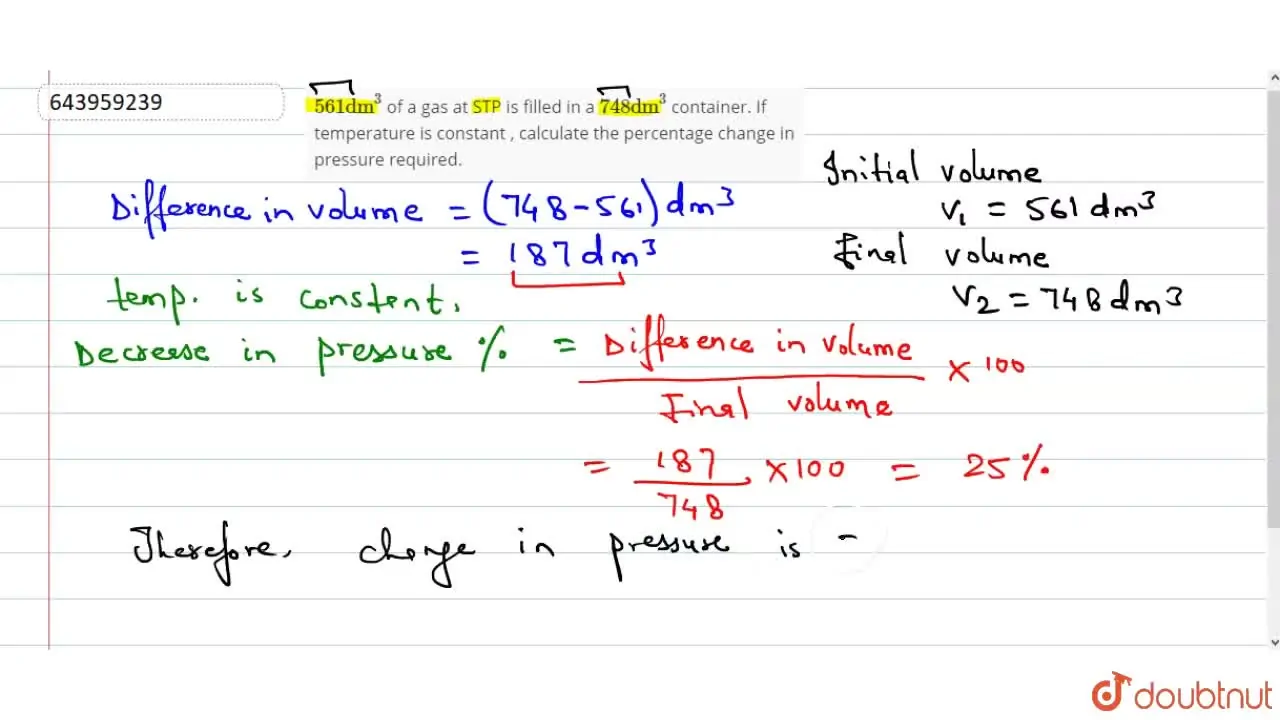 643959239
561dm³ of a gas at STP is filled in a 748dm³ container. If
temperature is constant , calculate the percentage change in
pressure required.
Initial volume
V₁ = 561 dm³
Final volume
V₂ = 748 dm³
Difference in volume = (748-561) dm³
= 187 dm³
temp. is constent.
Decrease in pressure % = Difference in volume / Final volume × 100
= 187 / 748 × 100 = 25 %
Therefore, change in pressure is
doubtnut